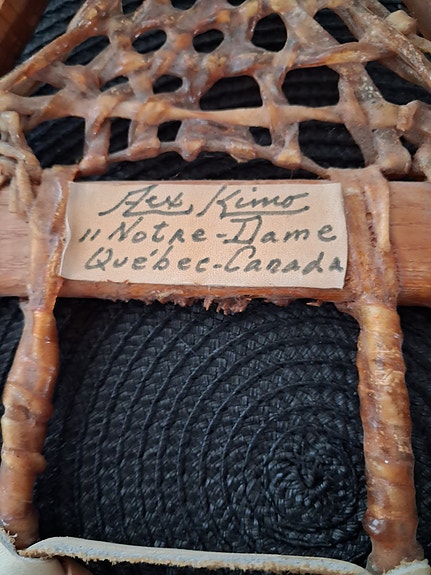 Aex Kimo
11 Notre-Dame
Québec-Canada